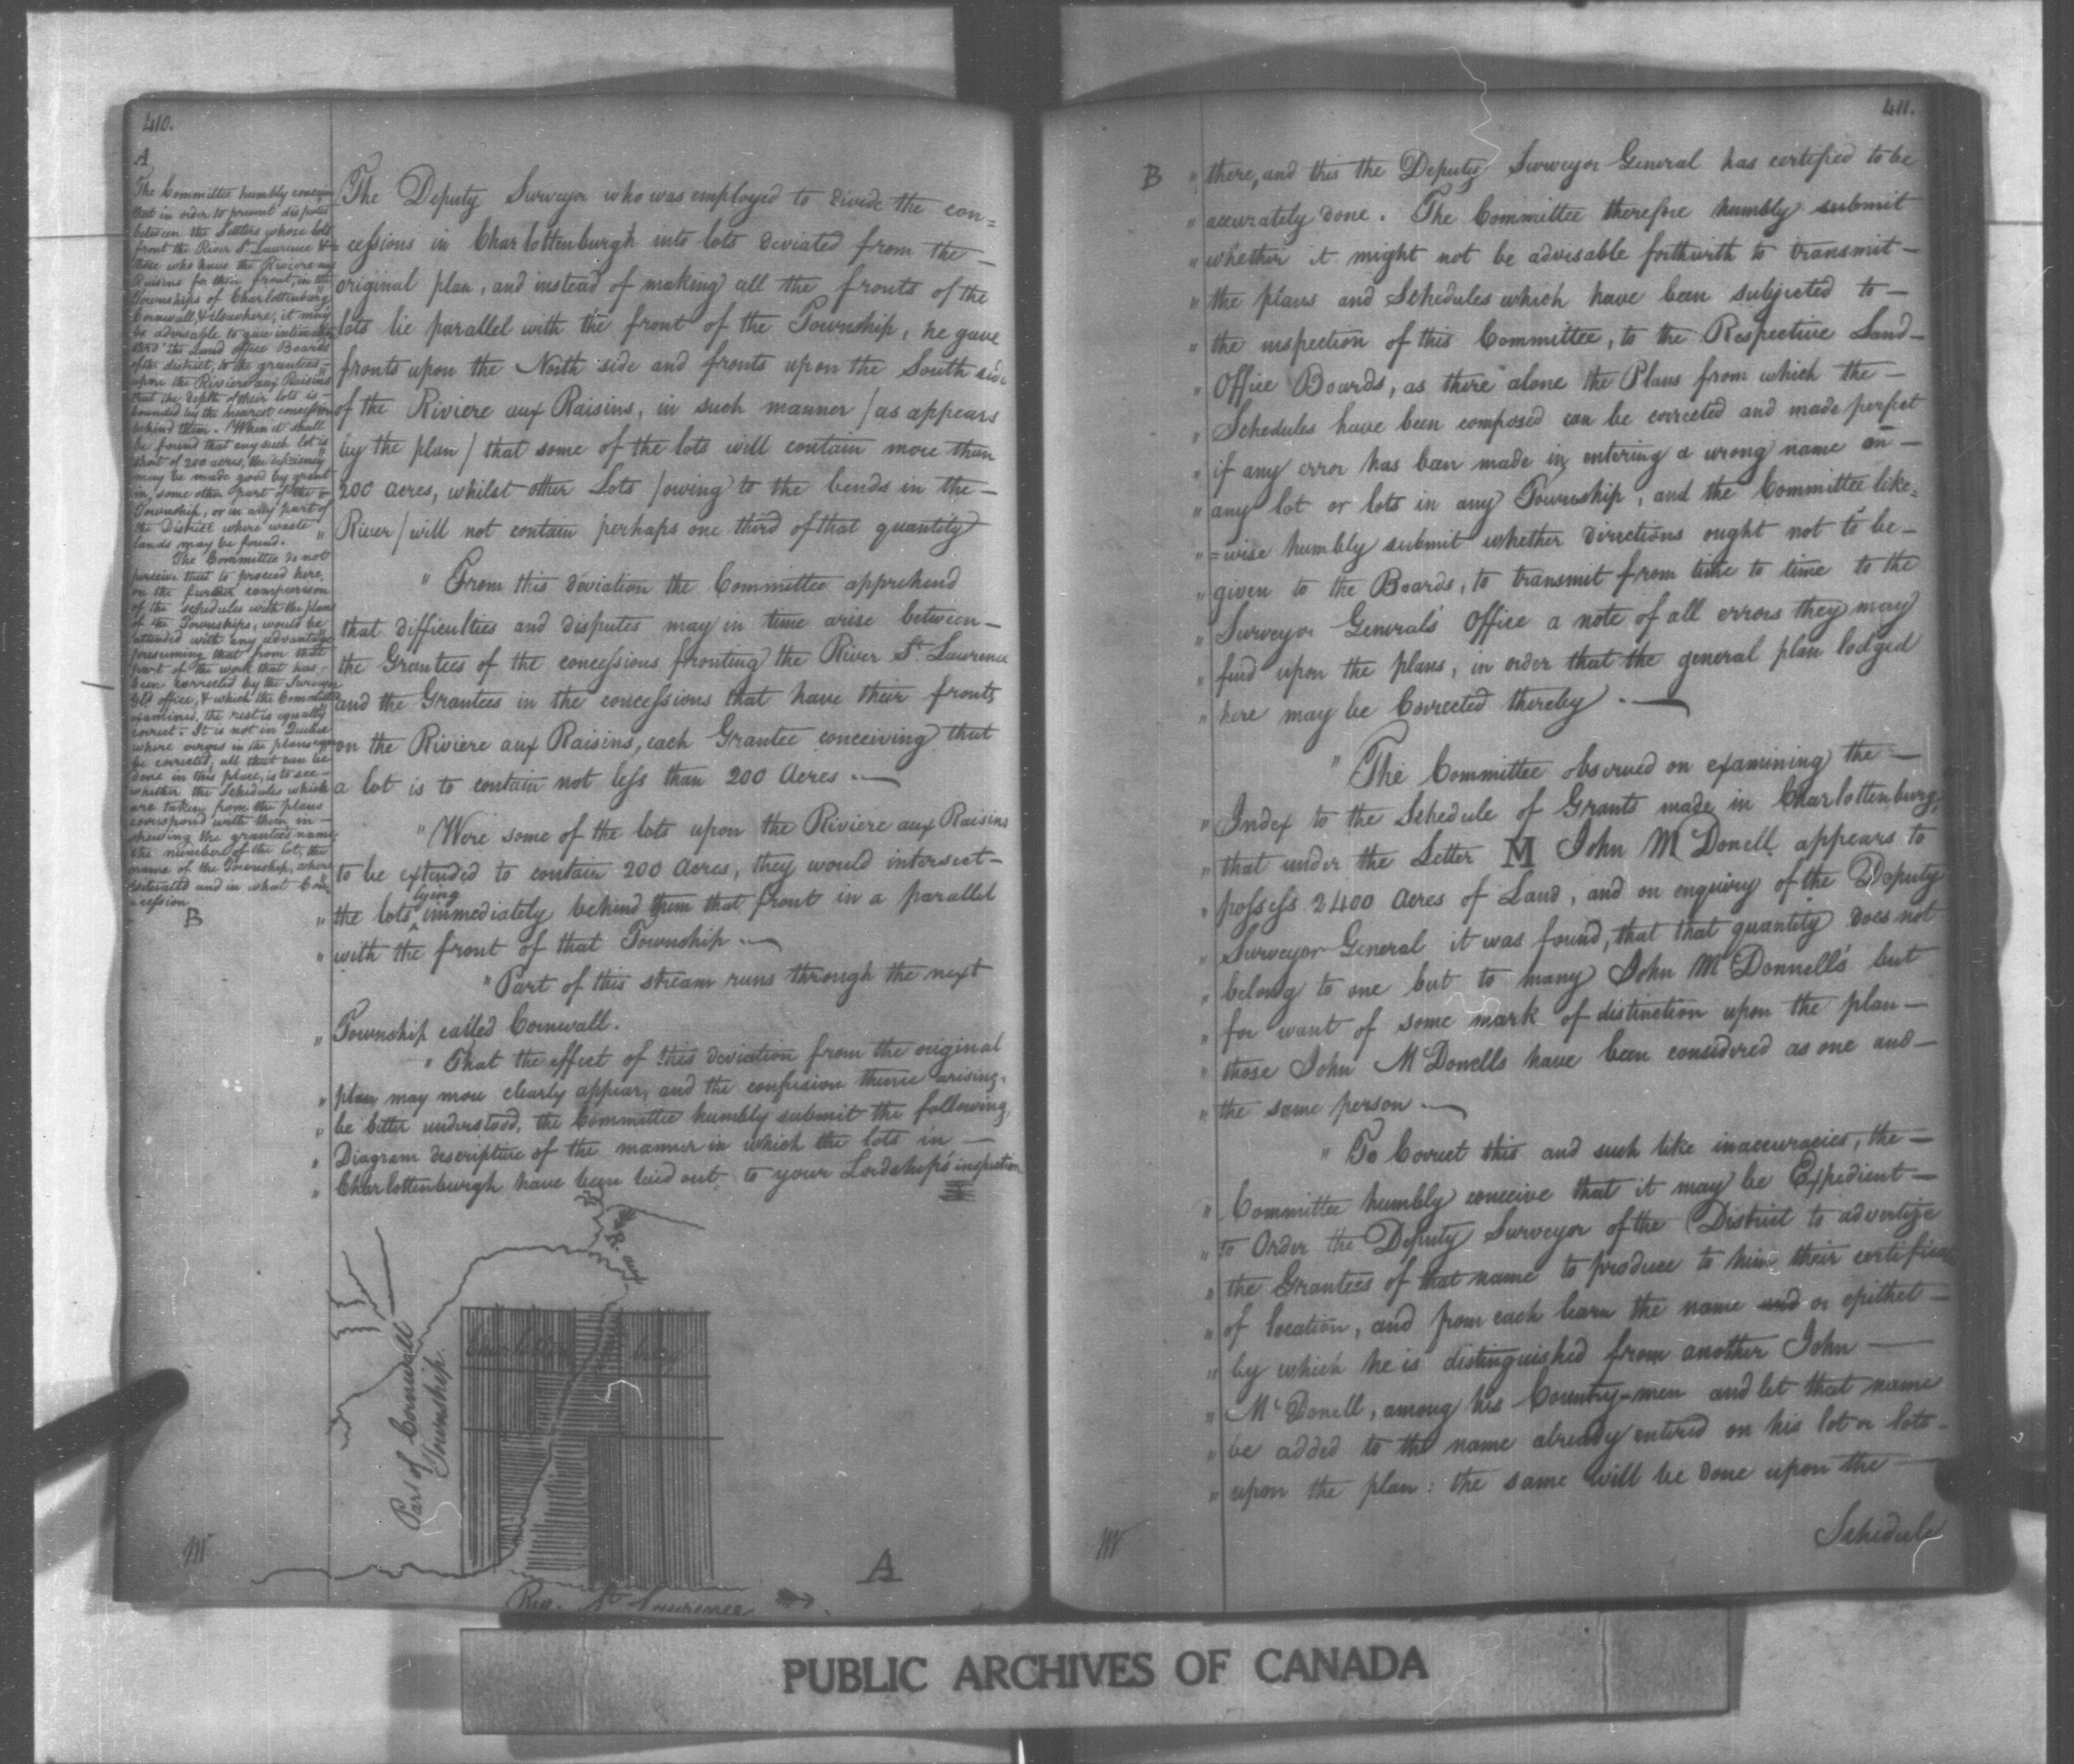 410.
A
The Committee humbly conceive
that in order to prevent disputes
between the Settlers whose lots
front the River St. Lawrence &
those who have the Riviere aux
Raisins for their front, in the
Townships of Charlottenburg
Cornwall, & elsewhere, it may
be advisable to give intimation
the Land office Boards
of the district, to the grantees
upon the Riviere aux Raisins
that the depth of their lots is
bounded by the nearest concession
behind them. When it shall
be found that any such lot is
short of 200 acres, the deficiency
may be made good by grant
in some other part of the
Township, or in any part of
the District where waste
lands may be found. "
The Committee do not
perceive that to proceed here,
on the further comparison
of the schedules with the plans
of the Townships, would be
attended with any advantage
presuming that from that
part of the work that has
been corrected by the Surveyor
Gl's office, & which the Committee
examined, the rest is equally
correct. It is not in Quebec
where errors in the plans can
be corrected, all that can be
done in this place, is to see
whether the Schedules which
are taken from the plans
correspond with them in
shewing the grantees name
the number of the lot, the
name of the Township, where
situated and in what Con
cession
B
The Deputy Surveyor who was employed to divide the con=
=cessions in Charlottenburgh into lots deviated from the —
original plan, and instead of making all the fronts of the
lots lie parallel with the front of the Township, he gave
fronts upon the North side and fronts upon the South side
of the Riviere aux Raisins, in such manner / as appears
by the plan / that some of the lots will contain more than
200 acres, whilst other Lots / owing to the bends in the —
River / will not contain perhaps one third of that quantity
" From this deviation the Committee apprehend
that difficulties and disputes may in time arise between —
the Grantees of the concessions fronting the River St. Lawrence
and the Grantees in the concessions that have their fronts
on the Riviere aux Raisins, each Grantee conceiving that
a lot is to contain not less than 200 Acres. —
" Were some of the lots upon the Riviere aux Raisins
to be extended to contain 200 Acres, they would intersect —
" the lots lying immediately behind them that front in a parallel
" with the front of that Township —
" Part of this stream runs through the next
" Township called Cornwall.
" That the effect of this deviation from the original
" plan may more clearly appear, and the confusion thence arising,
" be better understood, the Committee humbly submit the following
" Diagram descriptive of the manner in which the lots in —
" Charlottenburgh have been laid out to your Lordship's inspection
R. aux
Charlottenburg
Part of Cornwall
Township.
Riv. St. Lawrence
A
411.
B " there, and this the Deputy Surveyor General has certified to be
" accurately done. The Committee therefore humbly submit
" whether it might not be advisable forthwith to transmit —
" the plans and Schedules which have been subjected to —
" the inspection of this Committee, to the Respective Land —
" Office Boards, as there alone the Plans from which the —
" Schedules have been composed can be corrected and made perfect
" if any error has been made in entering a wrong name on —
" any lot or lots in any Township, and the Committee like=
" =wise humbly submit whether directions ought not to be —
" given to the Boards, to transmit from time to time to the
" Surveyor General's Office a note of all errors they may
" find upon the plans, in order that the general plan lodged
" here may be Corrected thereby. —
" The Committee observed on examining the —
" Index to the Schedule of Grants made in Charlottenburg,
" that under the Letter M John McDonell appears to
" possess 2400 Acres of Land, and on enquiry of the Deputy
" Surveyor General it was found, that that quantity does not
" belong to one but to many John McDonnell's but
" for want of some mark of distinction upon the plan —
" those John McDonells have been considered as one and —
" the same person. —
" To Correct this and such like inaccuracies, the —
" Committee humbly conceive that it may be Expedient —
" to Order the Deputy Surveyor of the District to advertize
" the Grantees of that name to produce to him their certificates
" of location, and from each learn the name and or epithet —
" by which he is distinguished from another John —
" McDonell, among his Country-men and let that name
" be added to the name already entered on his lot or lots
" upon the plan: the same will be done upon the —
Schedule
PUBLIC ARCHIVES OF CANADA